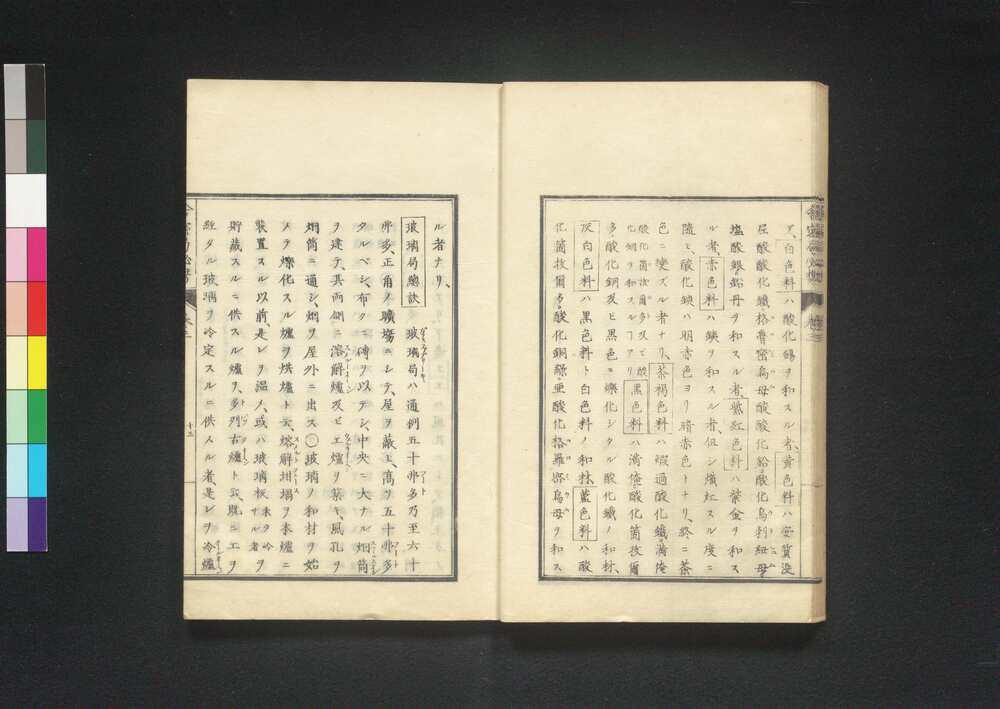 ス、白色料ハ酸化錫ヲ和スル者、黄色料ハ安質没
尼酸酸化鐵格魯密烏母酸酸化鉛酸化烏利紐母
塩酸銀鉛丹ヲ和スル者、紫紅色料ハ紫金ヲ和ス
ル者、赤色料ハ鐵ヲ和スル者、但シ熾紅スル度ニ
隨ヒ酸化鐵ハ明赤色ヨリ暗赤色トナリ、終ニ茶
色ニ變ズル者ナリ、茶褐色料ハ過酸化鐵満俺
酸化箇抜爾多及ヒ酸化銅ヲ和スルヿアリ黒色料ハ満俺酸化箇抜爾
多酸化銅及ヒ黒色ニ爍化シタル酸化鐵ノ和林、
灰白色料ハ黒色料ト白色料ノ和林藍色料ハ酸
化箇抜爾多酸化銅緑亜酸化格羅密烏母ヲ和ス
ル者ナリ、
玻璃局總訣 玻璃局ハ通例五十弗多乃至六十
弗多、正角ノ曠塲ニシテ、屋ヲ蔽上、高リ五十弗多
タルベシ、布クニ磚ヲ以テシ、中央ニ大ナル烟筒
ヲ建テ、其両側ニ溶解爐及ビエ爐ヲ築キ、風孔ヲ
烟筒ニ通シ、烟ヲ屋外ニ出ス○玻璃ノ和材ヲ始
メテ爍化スル爐ヲ烘爐ト云、熔解坩堝ヲ本爐ニ
装置スル以前、是レヲ温メ、或ハ玻璃板未タ冷サル者ヲ
貯蔵スルニ供スル爐ヲ、多列古爐ト云、既ニエヲ
經タル玻璃ヲ冷定スルニ供スル者、是レヲ冷爐
十三